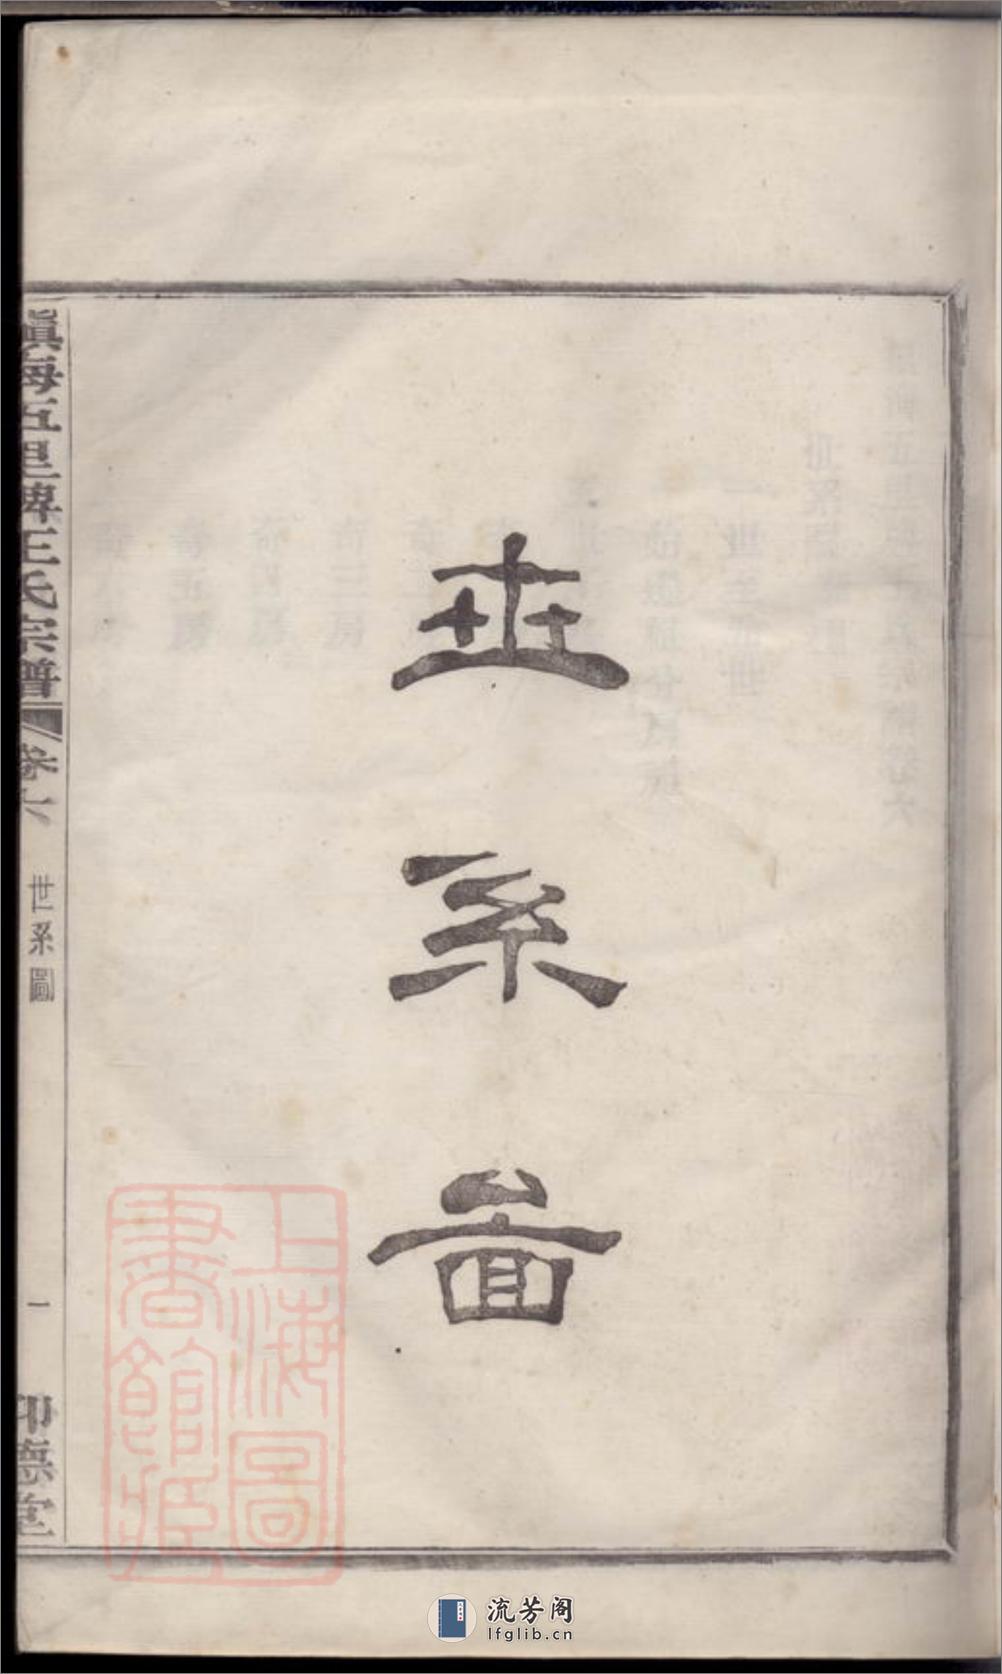 世系圖
鎮海五里牌王氏宗譜
卷六
世系圖
一
印德堂
上海圖
書館藏
流芳阁
lfglib.cn